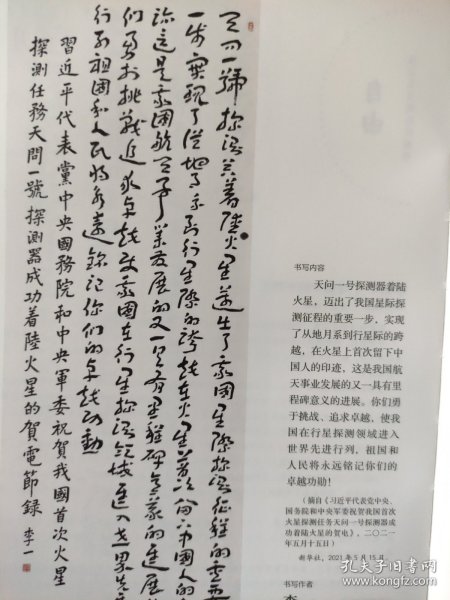 天问一號探測器着陸火星邁出了我國星際探測征程的重要
一步實現了從地月系到行星際的跨越在火星首次留下中國人的印
迹這是我國航天事業發展的又一具有里程碑意義的進展你
们勇於挑戰追求卓越使我國在行星探測領域進入世界先進
行列祖國和人民將永遠銘記你们的卓越功勳
習近平代表黨中央國務院和中央軍委祝賀我國首次火星
探測任務天問一號探測器成功着陸火星的賀電節録 李一
书写内容
天问一号探测器着陆
火星，迈出了我国星际探
测征程的重要一步，实现
了从地月系到行星际的跨
越，在火星上首次留下中
国人的印迹，这是我国航
天事业发展的又一具有里
程碑意义的进展。你们勇
于挑战、追求卓越，使我
国在行星探测领域进入
世界先进行列，祖国和
人民将永远铭记你们的
卓越功勋！
（摘自《习近平代表党中央、
国务院和中央军委祝贺我国首次
火星探测任务天问一号探测器成
功着陆火星的贺电》，二〇二一
年五月十五日）
新华社，2021年5月15日
书写作者
孔夫子旧书网